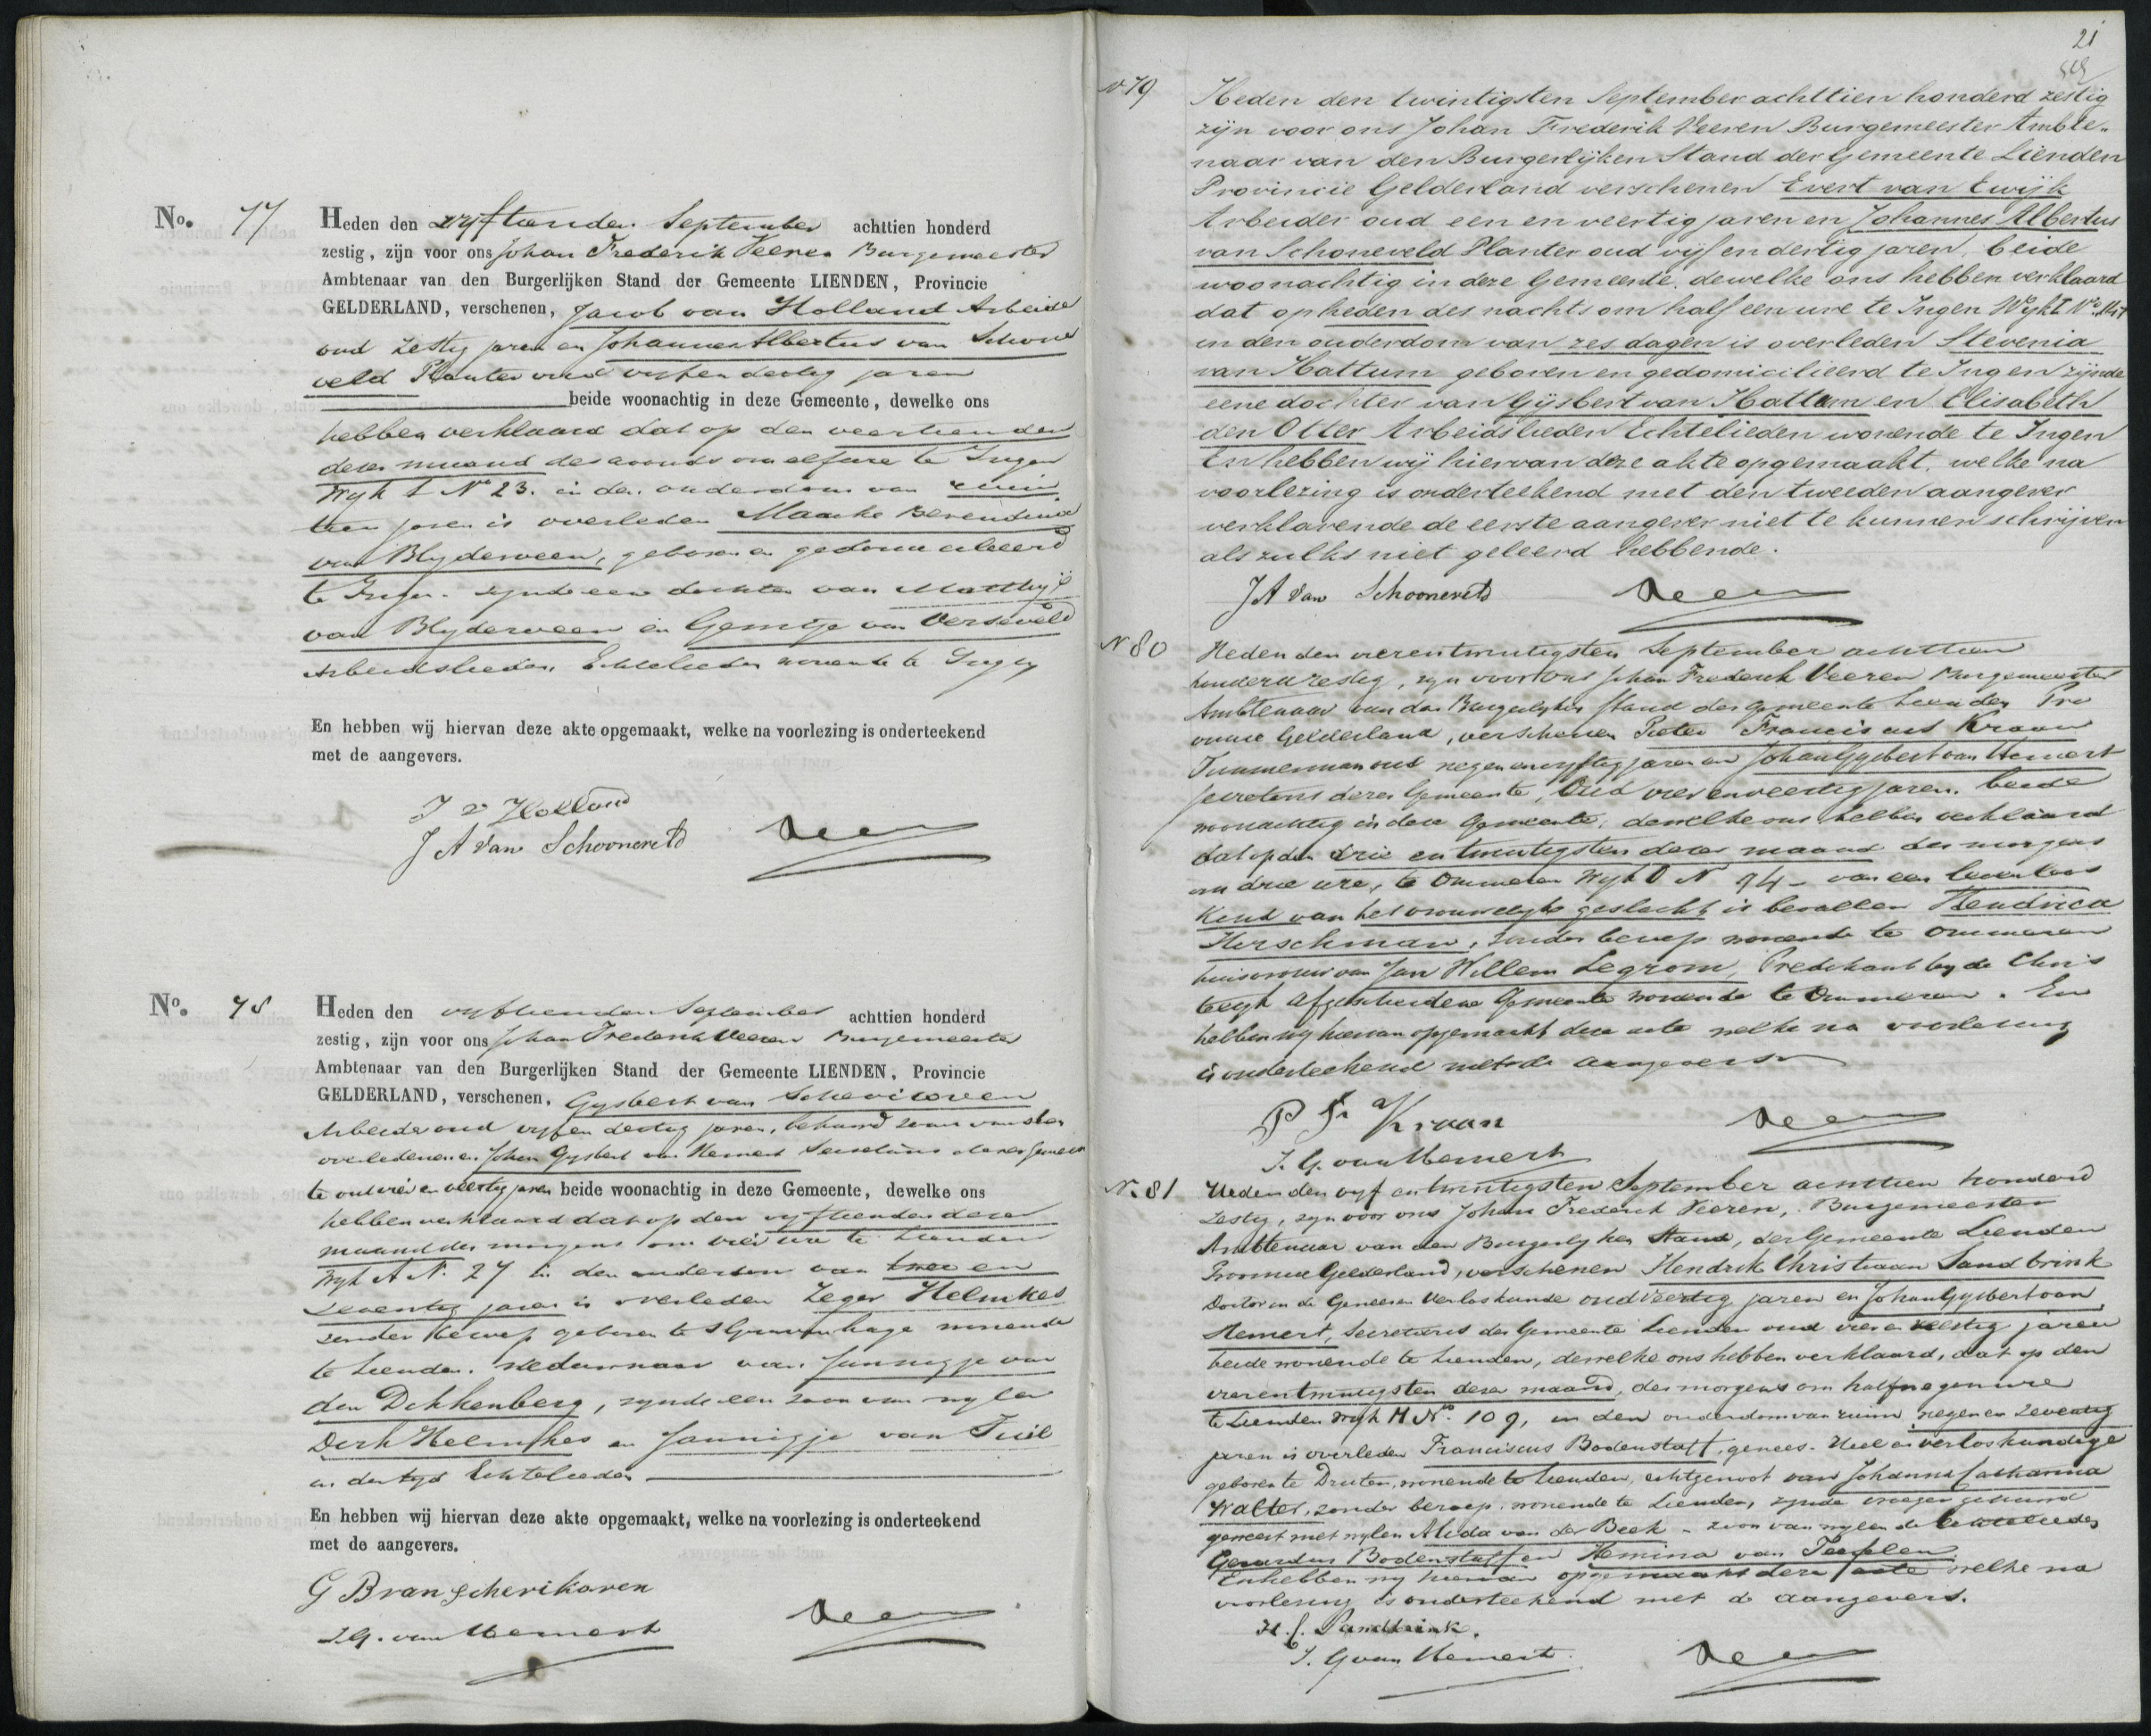 No. 77 Heden den vyftienden September achttien honderd
zestig, zijn voor ons Johan Frederik Veeren Burgemeester
Ambtenaar van den Burgerlijken Stand der Gemeente LIENDEN, Provincie
GELDERLAND, verschenen, Jacob van Holland Arbeider
oud zestig jaren en Johannes Albertus van Schone
veld Planter oud vyf en dertig jaren
beide woonachtig in deze Gemeente, dewelke ons
hebben verklaard dat op den veertienden
dezer maand des avonds om elf ure te Ingen
Wyk I No 23. in den ouderdom van ruim
tien jaren is overleden Maaike Berendina
van Blyderveen, geboren en gedomicilieerd
te Ingen. zynde een dochter van Matthys
van Blyderveen en Gerritje van Verseveld
Arbeidslieden, Echtelieden wonende te Ingen
En hebben wij hiervan deze akte opgemaakt, welke na voorlezing is onderteekend
met de aangevers.
J v Holland
J A van Schooneveld
Veeren
No. 78 Heden den vyftienden September achttien honderd
zestig, zijn voor ons Johan Frederik Veeren Burgemeester
Ambtenaar van den Burgerlijken Stand der Gemeente LIENDEN, Provincie
GELDERLAND, verschenen, Gysbert van Schevikoven
Arbeider oud vyf en dertig jaren, behuwd zoon van den
overledenen en Johan Gysbert van Hemert Secretaris dezer Gemeen
te oud vier en veertig jaren beide woonachtig in deze Gemeente, dewelke ons
hebben verklaard dat op den vyftienden dezer
maand des morgens om vier ure te Lienden
Wyk A No. 27 in den ouderdom van twee en
zeventig jaren is overleden Zeger Helmkes
zonder beroep geboren te s Gravenhage wonende
te Lienden. weduwnaar van Jannigje van
den Dekkenberg, zynde een zoon van wylen
Derk Helmkes en Jannigje van Tuil
in der tyd Echtelieden
En hebben wij hiervan deze akte opgemaakt, welke na voorlezing is onderteekend
met de aangevers.
G B van Schevikoven
J. G. van Hemert
Veeren
21
No 79 Heden den twintigsten September achttien honderd zestig
zijn voor ons Johan Frederik Veeren Burgemeester Ambte-
naar van den Burgerlijken Stand der Gemeente Lienden
Provincie Gelderland verschenen Evert van Ewijk
Arbeider oud een en veertig jaren en Johannes Albertus
van Schoneveld Planter oud vijf en dertig jaren, beide
woonachtig in deze Gemeente, dewelke ons hebben verklaard
dat op heden des nachts om half een ure te Ingen Wyk I No.
in den ouderdom van zes dagen is overleden Stevenia
van Hattum geboren en gedomicilieerd te Ingen zijnde
eene dochter van Gijsbert van Hattum en Elisabeth
den Otter Arbeidslieden Echtelieden wonende te Ingen
En hebben wij hiervan deze akte opgemaakt, welke na
voorlezing is onderteekend met den tweeden aangever
verklarende de eerste aangever niet te kunnen schrijven
als zulks niet geleerd hebbende.
J A van Schooneveld
Veeren
N 80 Heden den vierentwintigsten September achttien
honderd zestig, zyn voor ons Johan Frederik Veeren Burgemeester
Ambtenaar van den Burgerlyken Stand der Gemeente Lienden Pro
vincie Gelderland, verschenen Pieter Franciscus Kraan
Timmerman oud negen en vyftig jaren en Johan Gysbert van Hemert
Secretaris dezer Gemeente, Oud vier en veertig jaren. beide
woonachtig in deze Gemeente, dewelke ons hebben verklaard
dat op den drie en twintigsten dezer maand des morgens
om drie ure, te Ommeren Wyk D N 94 - van een levenloos
Kind van het vrouwelyk geslacht is bevallen Hendrica
Herschman, zonder beroep wonende te Ommeren
huisvrouw van Jan Willem Legrom, Predikant by de Chris
telyk Afgescheidene Gemeente wonende te Ommeren. En
hebben wy hiervan opgemaakt deze acte welke na voorlezing
is onderteekend met de aangevers
P Fr Kraan
Veeren
J. G. van Hemert
No. 81 Heden den vyf en twintigsten September achttien honderd
zestig, zyn voor ons Johan Frederik Veeren, Burgemeester
Ambtenaar van den Burgerlyken Stand, der Gemeente Lienden
Provincie Gelderland, verschenen Hendrik Christiaan Sandbrink
Doctor in de Genees en Verloskunde oud veertig jaren en Johan Gysbert van
Hemert, Secretaris der Gemeente Lienden oud vier en veertig jaren
beide wonende te Lienden, dewelke ons hebben verklaard, dat op den
vierentwintigsten dezer maand, des morgens om half negen ure
te Lienden Wyk H No. 109, in den ouderdom van ruim negen en zeventig
jaren is overleden Franciscus Bodenstaff, genees- Heel en verloskundige
geboren te Druten, wonende te Lienden, echtgenoot van Johanna Catharina
Walter, zonder beroep, wonende te Lienden, zynde vroeger gehuwd
geweest met wylen Aleda van der Beek - zoon van wylen de Echtelieden
Gerardus Bodenstaff en Hemina van Teefelen
En hebben wy hiervan opgemaakt deze acte welke na
voorlezing is onderteekend met de aangevers.
H. C. Sandbrink.
J. G van Hemert.
Veeren